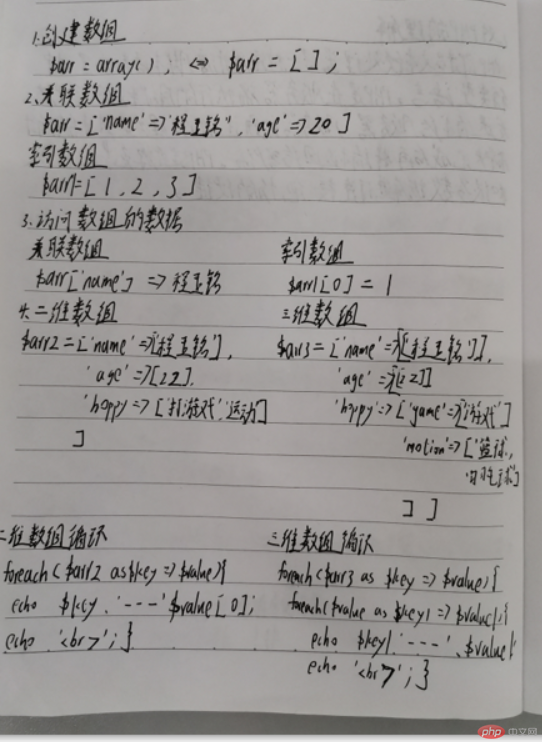 1.创建数组
$arr = array(); <=> $arr = [];
2.关联数组
$arr = ['name'=>'程玉铭','age'=>20]
索引数组
$arr1=[1,2,3]
3.访问数组的数据
关联数组
$arr['name'] => 程玉铭
索引数组
$arr1[0] = 1
4.二维数组
$arr2=['name'=>['程玉铭'],
'age'=>[22],
'hoppy=>['打游戏','运动']
]
三维数组
$arr3=['name'=>[['程玉铭']],
'age'=>[[22]]
'hoppy'=>['game'=>['游戏']
'motion'=>['篮球,
]]
二维数组循环
foreach($arr2 as $key=>$value){
echo $key.'---'$value[0];
echo '<br>';}
三维数组循环
foreach($arr3 as $key=>$value){
foreach($value as $key1=>$value1){
echo $key1.'---'.$value1
echo '<br>';}
php 中文网